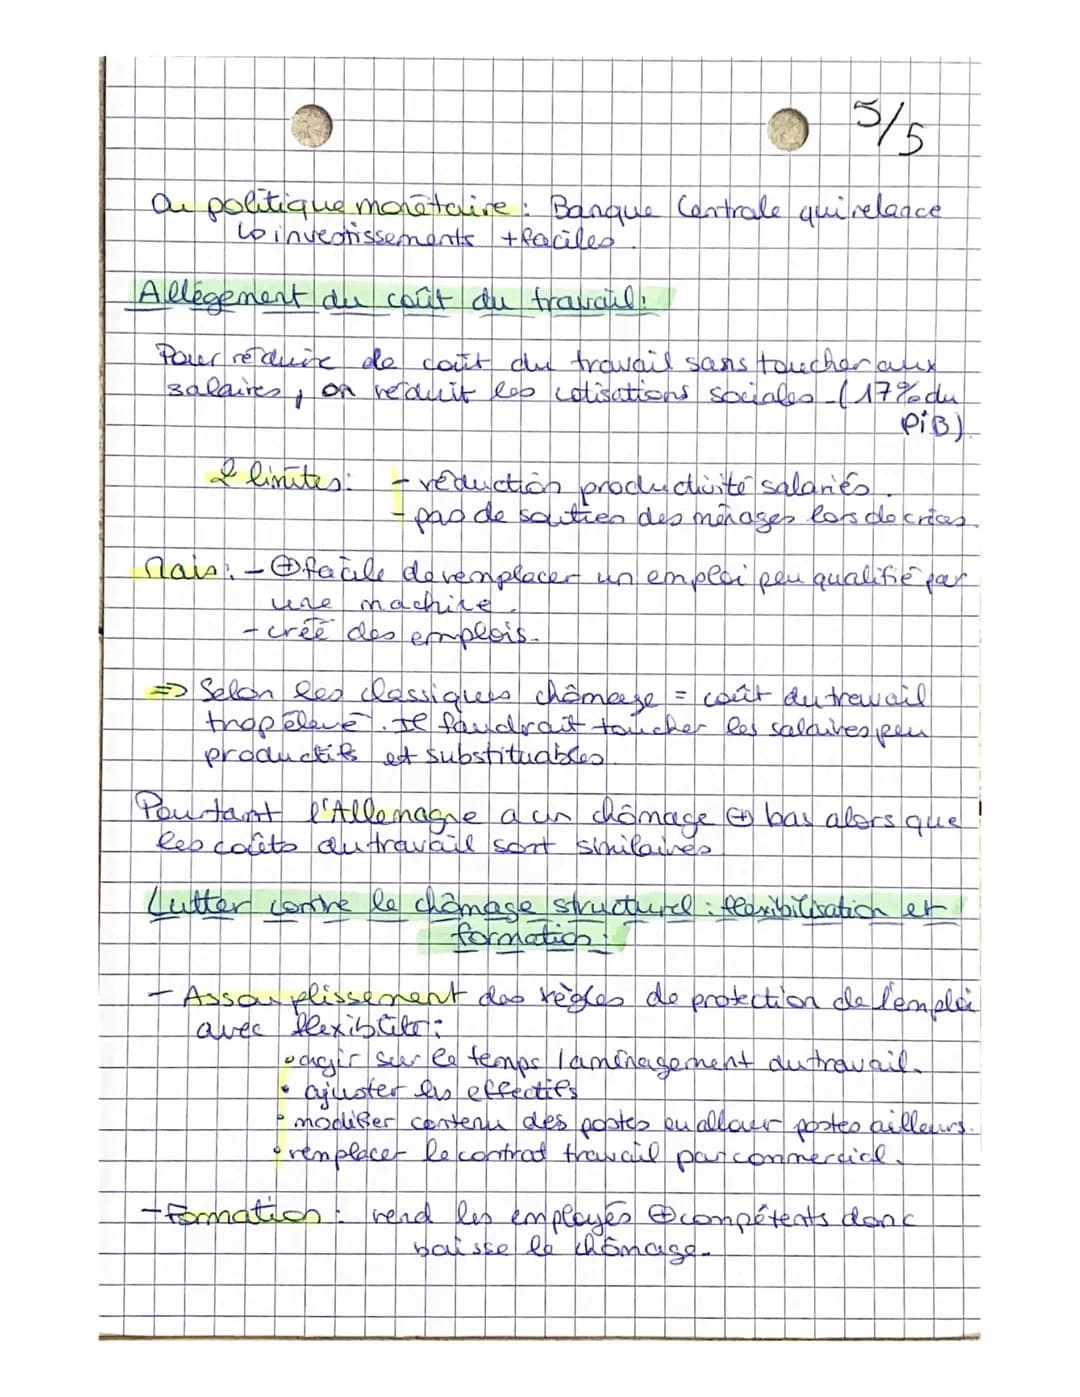 5/5
Ou politique monétaire : Banque Centrale qui relance
↳ investissements + faciles.
Allègement du coût du travail :
Pour réduire de coût du travail sans toucher aux
salaires, on réduit les cotisations sociales (17% du
PiB)
2 limites : - réduction productivité salariés.
- pas de soutien des ménages lors de crises.
Mais : - ⊕ facile de remplacer un emploi peu qualifié par
une machine.
- créé des emplois.
=> Selon les classiques chômage = coût du travail
trop élevé. Il faudrait toucher les salaires peu
productifs et substituables
Pourtant l'Allemagne a un chômage ⊕ bas alors que
les coûts du travail sont similaires
Lutter contre le chômage structurel : flexibilisation et
formation :
- Assouplissement des règles de protection de l'emploi
avec flexibilité :
• agir sur le temps / aménagement du travail.
• ajuster les effectifs
• modifier contenu des postes ou allouer postes ailleurs.
• remplacer le contrat travail par commercial.
- Formation : rend les employés ⊕ compétents donc
baisse le chômage.